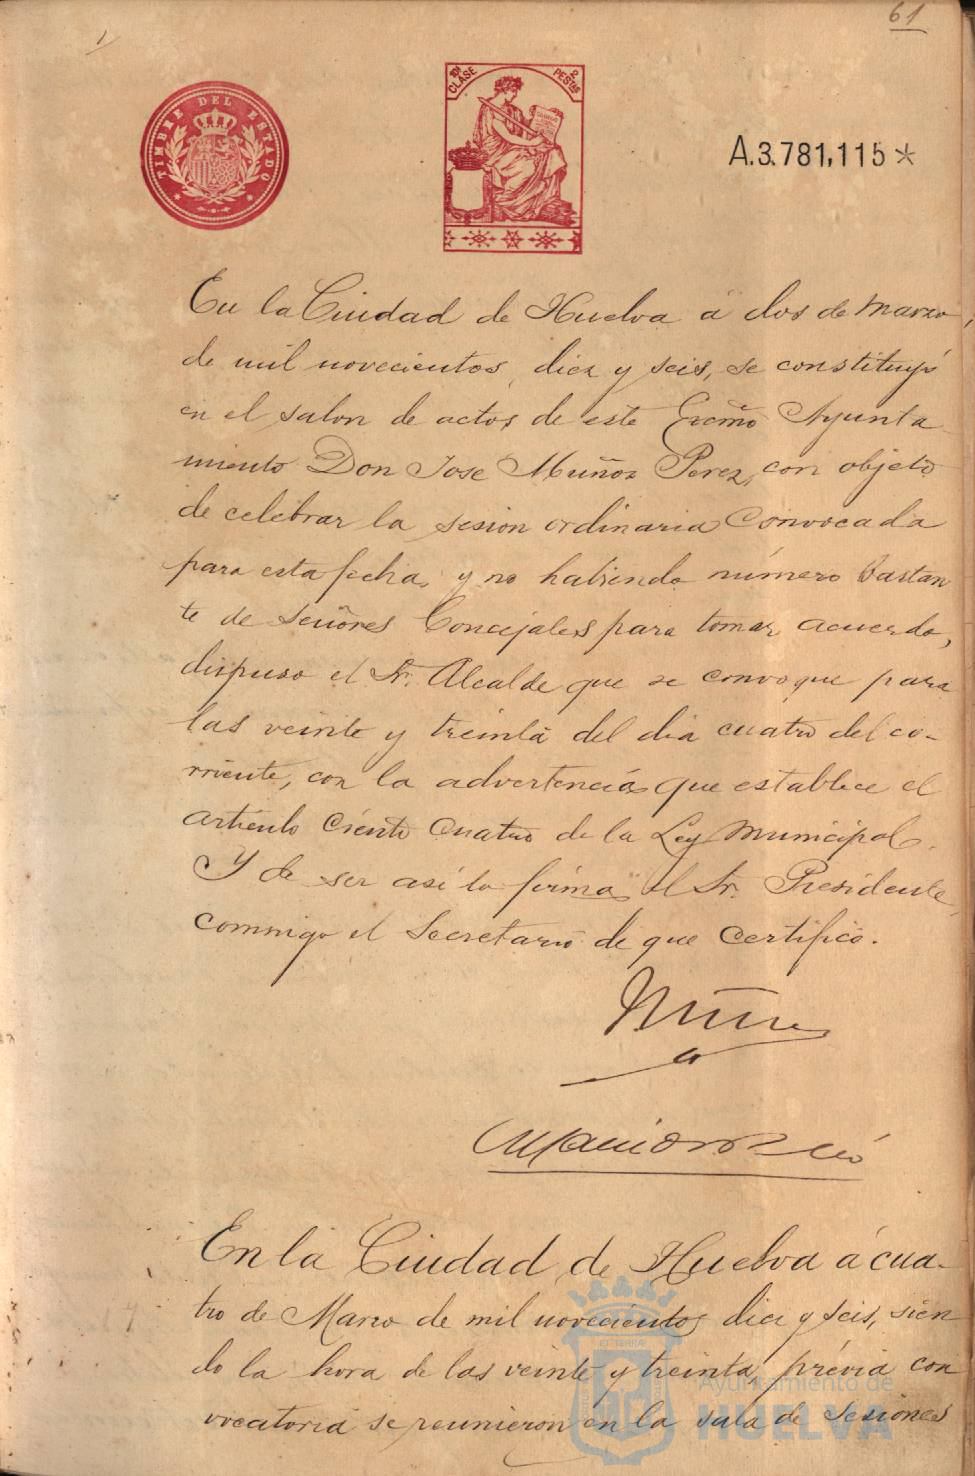 61
1
TIMBRE DEL ESTADO
10ª CLASE
2 PESTAS
A.3.781,115*
En la Ciudad de Huelva á dos de Marzo,
de mil novecientos diez y seis, se constituyó
en el salon de actos de este Excmo Ayunta-
miento Don Jose Muñoz Perez, con objeto
de celebrar la sesion ordinaria convocada
para esta fecha, y no habiendo número bastan
te de Señores Concejales para tomar acuerdo,
dispuso el Sr. Alcalde que se convoque para
las veinte y treinta del dia cuatro del co-
rriente, con la advertencia que establece el
artículo ciento cuatro de la Ley Municipal.
Y de ser así lo firma el Sr. Presidente,
conmigo el Secretario de que certifico.
Muñoz
En la Ciudad de Huelva á cua-
tro de Marzo de mil novecientos diez y seis, sien
do la hora de las veinte y treinta, prévia con
vocatoria se reunieron en la sala de Sesiones
Ayuntamiento de
HUELVA